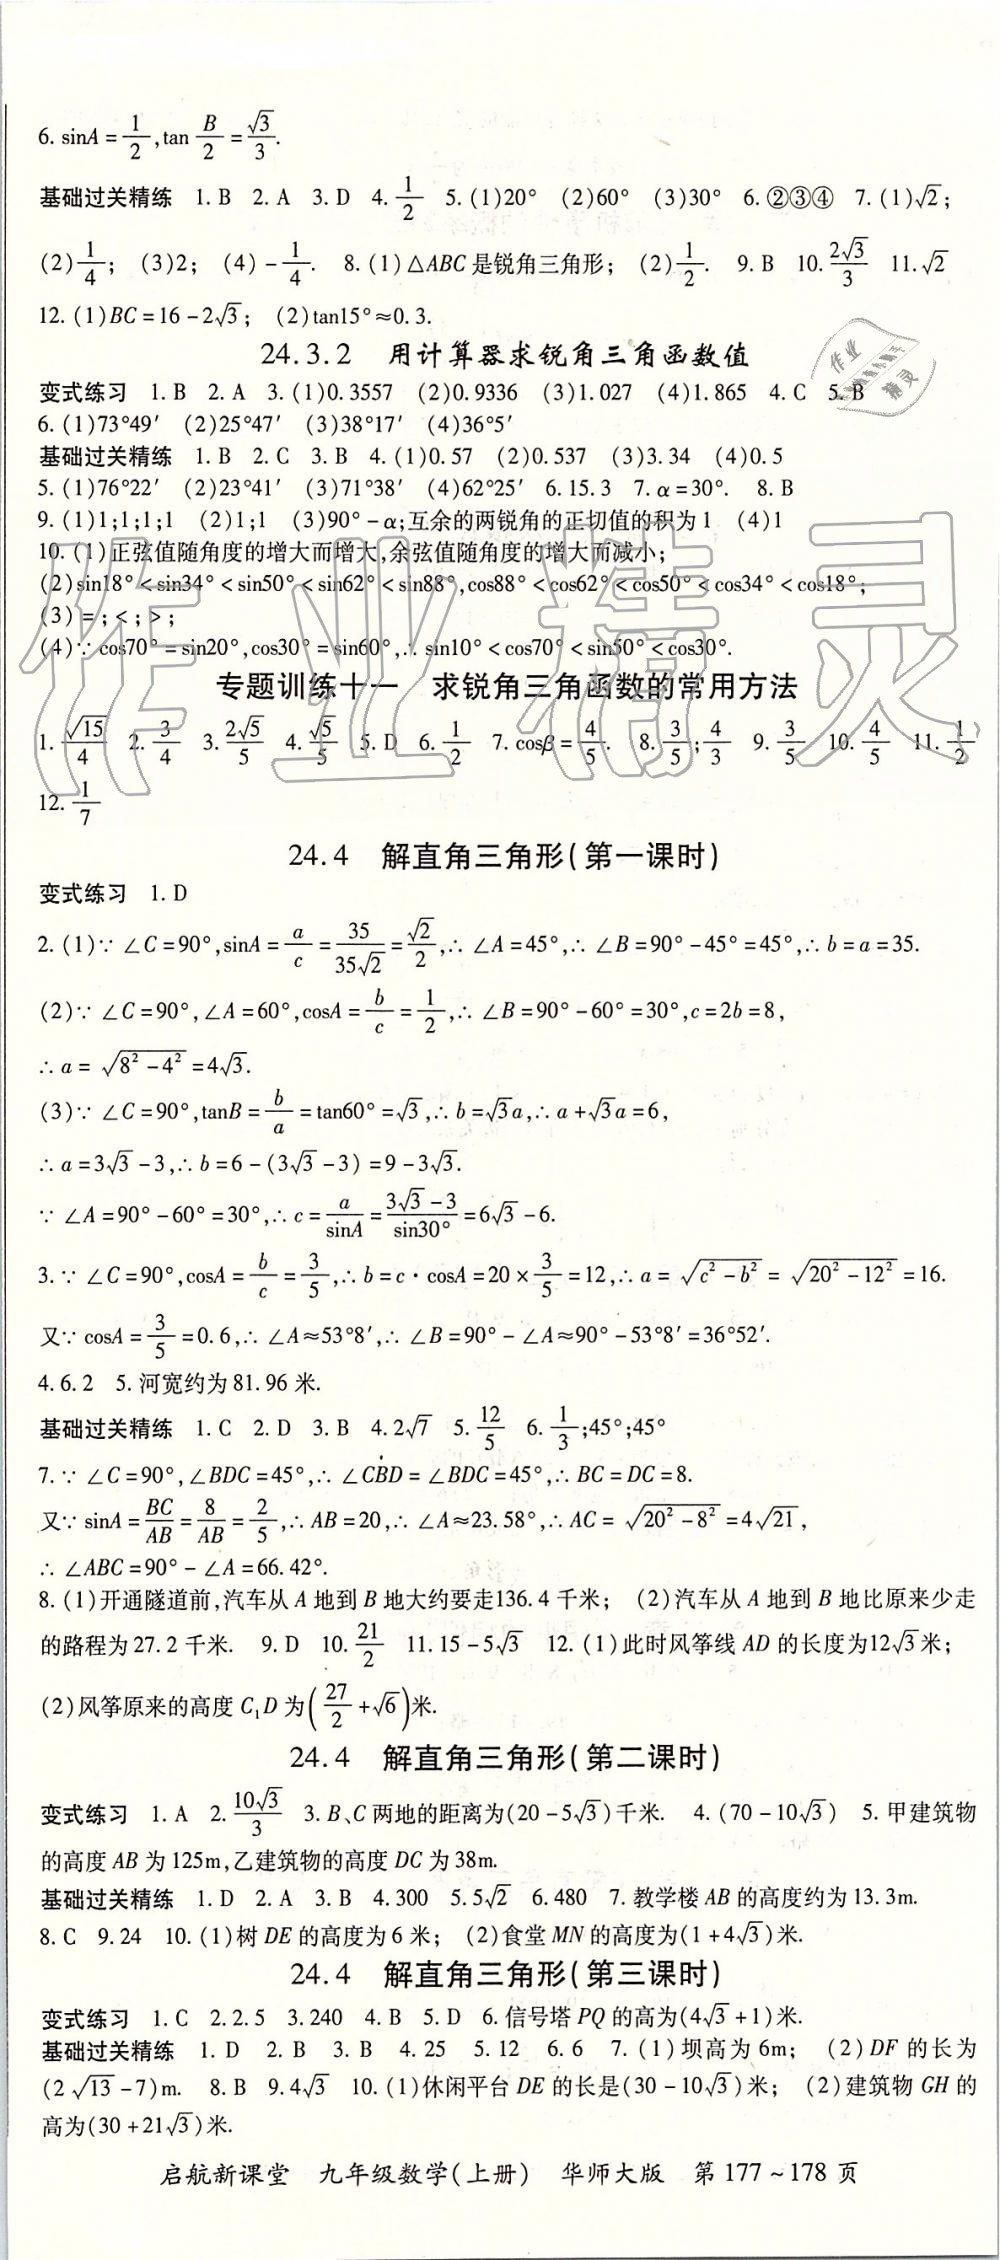 6. sinA = 1/2, tan B/2 = √3/3.
基础过关精练 1. B 2. A 3. D 4. 1/2 5. (1)20° (2)60° (3)30° 6. ②③④ 7. (1)√2;
(2)1/4; (3)2; (4)－1/4. 8. (1)△ABC是锐角三角形; (2)1/2. 9. B 10. 2√3/3 11. √2
12. (1)BC=16-2√3; (2)tan15°≈0.3.
24.3.2 用计算器求锐角三角函数值
变式练习 1. B 2. A 3. (1)0.3557 (2)0.9336 (3)1.027 (4)1.865 4. C 5. B
6. (1)73°49′ (2)25°47′ (3)38°17′ (4)36°5′
基础过关精练 1. B 2. C 3. B 4. (1)0.57 (2)0.537 (3)3.34 (4)0.5
5. (1)76°22′ (2)23°41′ (3)71°38′ (4)62°25′ 6. 15.3 7. α=30°. 8. B
9. (1)1;1;1;1 (2)1;1 (3)90°-α;互余的两锐角的正切值的积为1 (4)1
10. (1)正弦值随角度的增大而增大,余弦值随角度的增大而减小;
(2)sin18°<sin34°<sin50°<sin62°<sin88°,cos88°<cos62°<cos50°<cos34°<cos18°;
(3)=;<;>;
(4)∵cos70°=sin20°,cos30°=sin60°,∴sin10°<cos70°<sin50°<cos30°.
专题训练十一 求锐角三角函数的常用方法
1. √15/4 2. 3/4 3. 2√5/5 4. √5/5 5. D 6. 1/2 7. cosβ=4/5. 8. 3/5;4/3 9. 3/5 10. 4/5 11. 1/2
12. 1/7
24.4 解直角三角形(第一课时)
变式练习 1. D
2. (1)∵∠C=90°,sinA=a/c=35/35√2=√2/2,∴∠A=45°,∴∠B=90°-45°=45°,∴b=a=35.
(2)∵∠C=90°,∠A=60°,cosA=b/c=1/2,∴∠B=90°-60°=30°,c=2b=8,
∴a=√(8²-4²)=4√3.
(3)∵∠C=90°,tanB=b/a=tan60°=√3,∴b=√3a,∴a+√3a=6,
∴a=3√3-3,∴b=6-(3√3-3)=9-3√3.
∵∠A=90°-60°=30°,∴c=a/sinA=(3√3-3)/sin30°=6√3-6.
3. ∵∠C=90°,cosA=b/c=3/5,∴b=c·cosA=20×3/5=12,∴a=√(c²-b²)=√(20²-12²)=16.
又∵cosA=3/5=0.6,∴∠A≈53°8′,∴∠B=90°-∠A≈90°-53°8′=36°52′.
4. 6.2 5. 河宽约为81.96米.
基础过关精练 1. C 2. D 3. B 4. 2√7 5. 12/5 6. 1/3;45°;45°
7. ∵∠C=90°,∠BDC=45°,∴∠CBD=∠BDC=45°,∴BC=DC=8.
又∵sinA=BC/AB=8/AB=2/5,∴AB=20,∴∠A≈23.58°,∴AC=√(20²-8²)=4√21,
∴∠ABC=90°-∠A=66.42°.
8. (1)开通隧道前,汽车从A地到B地大约要走136.4千米; (2)汽车从A地到B地比原来少走
的路程为27.2千米. 9. D 10. 21/2 11. 15-5√3 12. (1)此时风筝线AD的长度为12√3米;
(2)风筝原来的高度C₁D为(27/2+√6)米.
24.4 解直角三角形(第二课时)
变式练习 1. A 2. 10√3/3 3. B、C两地的距离为(20-5√3)千米. 4. (70-10√3) 5. 甲建筑物
的高度AB为125m,乙建筑物的高度DC为38m.
基础过关精练 1. D 2. A 3. B 4. 300 5. 5√2 6. 480 7. 教学楼AB的高度约为13.3m.
8. C 9. 24 10. (1)树DE的高度为6米; (2)食堂MN的高度为(1+4√3)米.
24.4 解直角三角形(第三课时)
变式练习 1. C 2. 2.5 3. 240 4. B 5. D 6. 信号塔PQ的高为(4√3+1)米.
基础过关精练 1. D 2. B 3. B 4. 25 5. 12 6. 6 7. (1)坝高为6m; (2)DF的长为
(2√13-7)m. 8. B 9. 4√3 10. (1)休闲平台DE的长是(30-10√3)米; (2)建筑物GH的
高为(30+21√3)米.
启航新课堂 九年级数学(上册) 华师大版 第177~178页
作业精灵